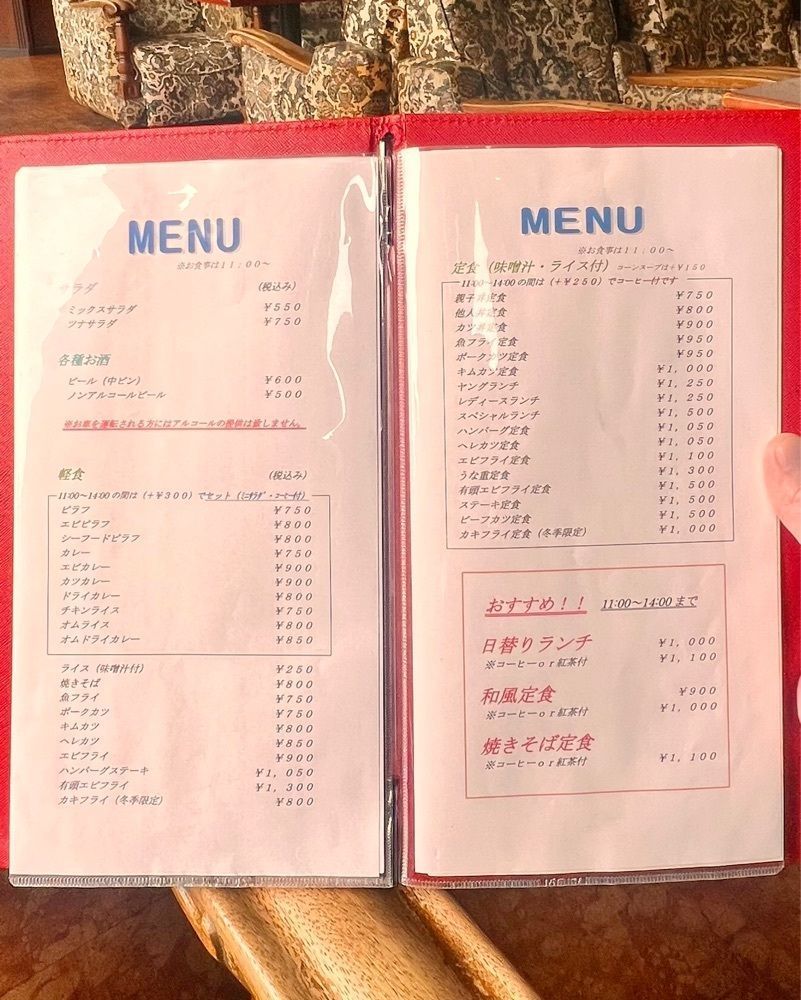 MENU
※お食事は11:00~
サラダ (税込み)
ミックスサラダ ¥550
ツナサラダ ¥750
各種お酒
ビール(中ビン) ¥600
ノンアルコールビール ¥500
※お車を運転される方にはアルコールの提供は致しません。
軽食 (税込み)
11:00~14:00の間は(+¥300)でセット(ミニサラダ・コーヒー付)
ピラフ ¥750
エビピラフ ¥800
シーフードピラフ ¥800
カレー ¥750
エビカレー ¥900
カツカレー ¥900
ドライカレー ¥800
チキンライス ¥750
オムライス ¥800
オムドライカレー ¥850
ライス(味噌汁付) ¥250
焼きそば ¥800
魚フライ ¥750
ポークカツ ¥750
キムカツ ¥800
ヘレカツ ¥850
エビフライ ¥900
ハンバーグステーキ ¥1,050
有頭エビフライ ¥1,300
カキフライ(冬季限定) ¥800
MENU
※お食事は11:00~
定食(味噌汁・ライス付) コーンスープは+¥150
11:00~14:00の間は(+¥250)でコーヒー付です
親子丼定食 ¥750
他人丼定食 ¥800
カツ丼定食 ¥900
魚フライ定食 ¥950
ポークカツ定食 ¥950
キムカツ定食 ¥1,000
ヤングランチ ¥1,250
レディースランチ ¥1,250
スペシャルランチ ¥1,500
ハンバーグ定食 ¥1,050
ヘレカツ定食 ¥1,050
エビフライ定食 ¥1,100
うな重定食 ¥1,300
有頭エビフライ定食 ¥1,500
ステーキ定食 ¥1,500
ビーフカツ定食 ¥1,500
カキフライ定食(冬季限定) ¥1,000
おすすめ!! 11:00~14:00まで
日替りランチ ¥1,000
※コーヒーor紅茶付 ¥1,100
和風定食 ¥900
※コーヒーor紅茶付 ¥1,000
焼きそば定食
※コーヒーor紅茶付 ¥1,100